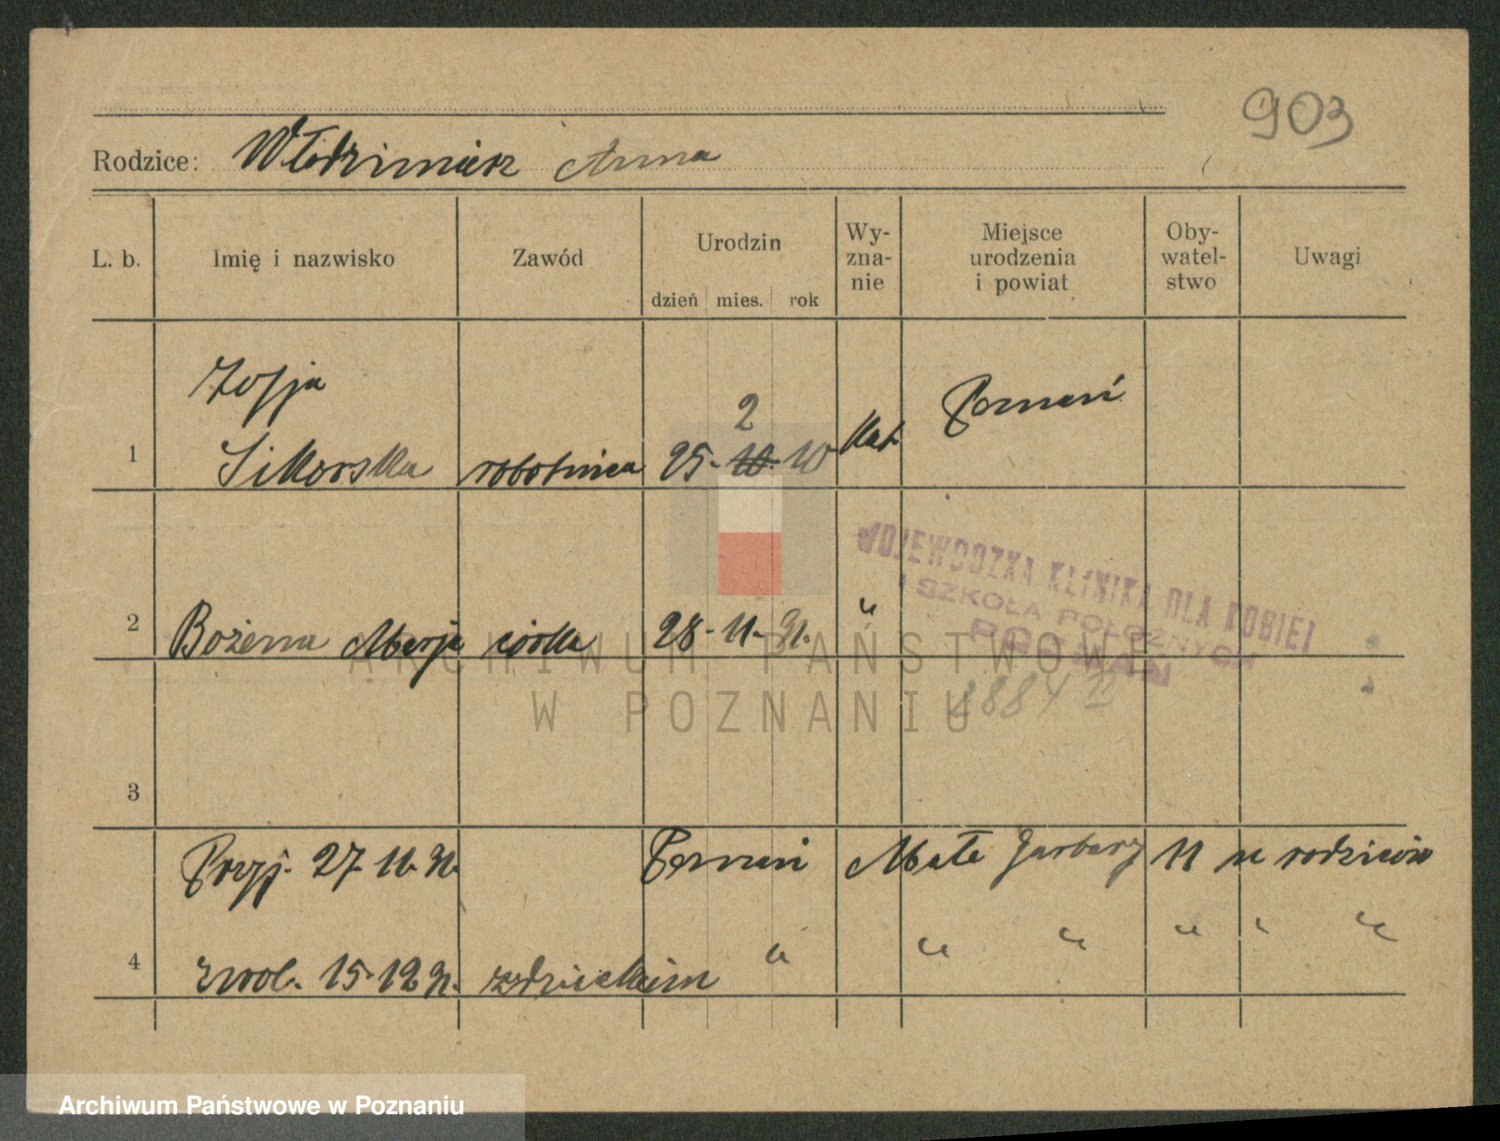 903
Rodzice: Włodzimierz Anna
L. b. Imię i nazwisko Zawód Urodzin dzień mies. rok Wy-zna-nie Miejsce urodzenia i powiat Oby-watel-stwo Uwagi
Zofja
2
1 Sikorska robotnica 25 - 10 - 10 Kat. Poznań
WOJEWÓDZKA KLINIKA DLA KOBIET
I SZKOŁA POŁOŻNYCH
POZNAŃ
2 Bożena Marja córka 28 - 11 - 31. "
8884
ARCHIWUM PAŃSTWOWE
W POZNANIU
3
Przyj. 27. 11. 31. Poznań Małe Garbary 11 u rodziców
4 zwol. 15. 12. 31. z dzieckiem " " " " " "
Archiwum Państwowe w Poznaniu